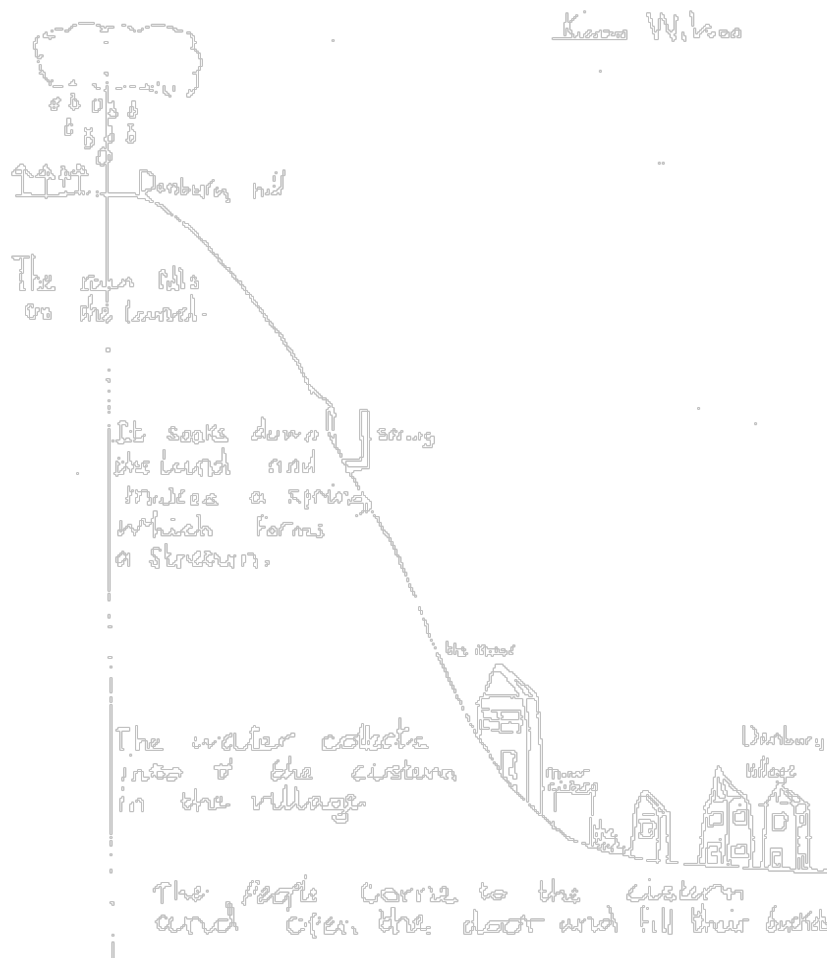 Kieran Wilson
Danbury hill
The rain falls
on the land.
It soaks down
the land and
makes a spring
which forms
a stream.
spring
the
The water collects
into the cistern
in the village.
Danbury
village
the
The people come to the cistern
and open the door and fill their buckets